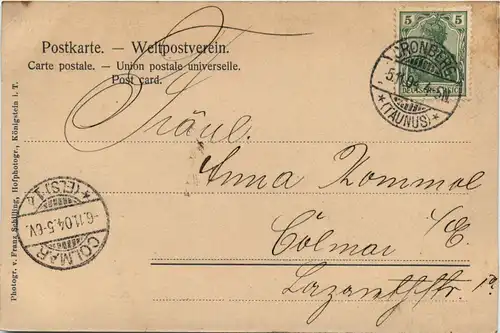 Postkarte. — Weltpostverein.
Carte postale. — Union postale universelle.
Post card.
5 5
DEUTSCHES REICH
CRONBERG
5.11.04.
* (TAUNUS) *
Fräul.
Anna Kommal
Colmar i/E.
Lazarethstr.
COLMAR
-6.11.04.5-6V.
* (ELS) *
Photogr. v. Franz Schilling, Hofphotogr., Königstein i. T.